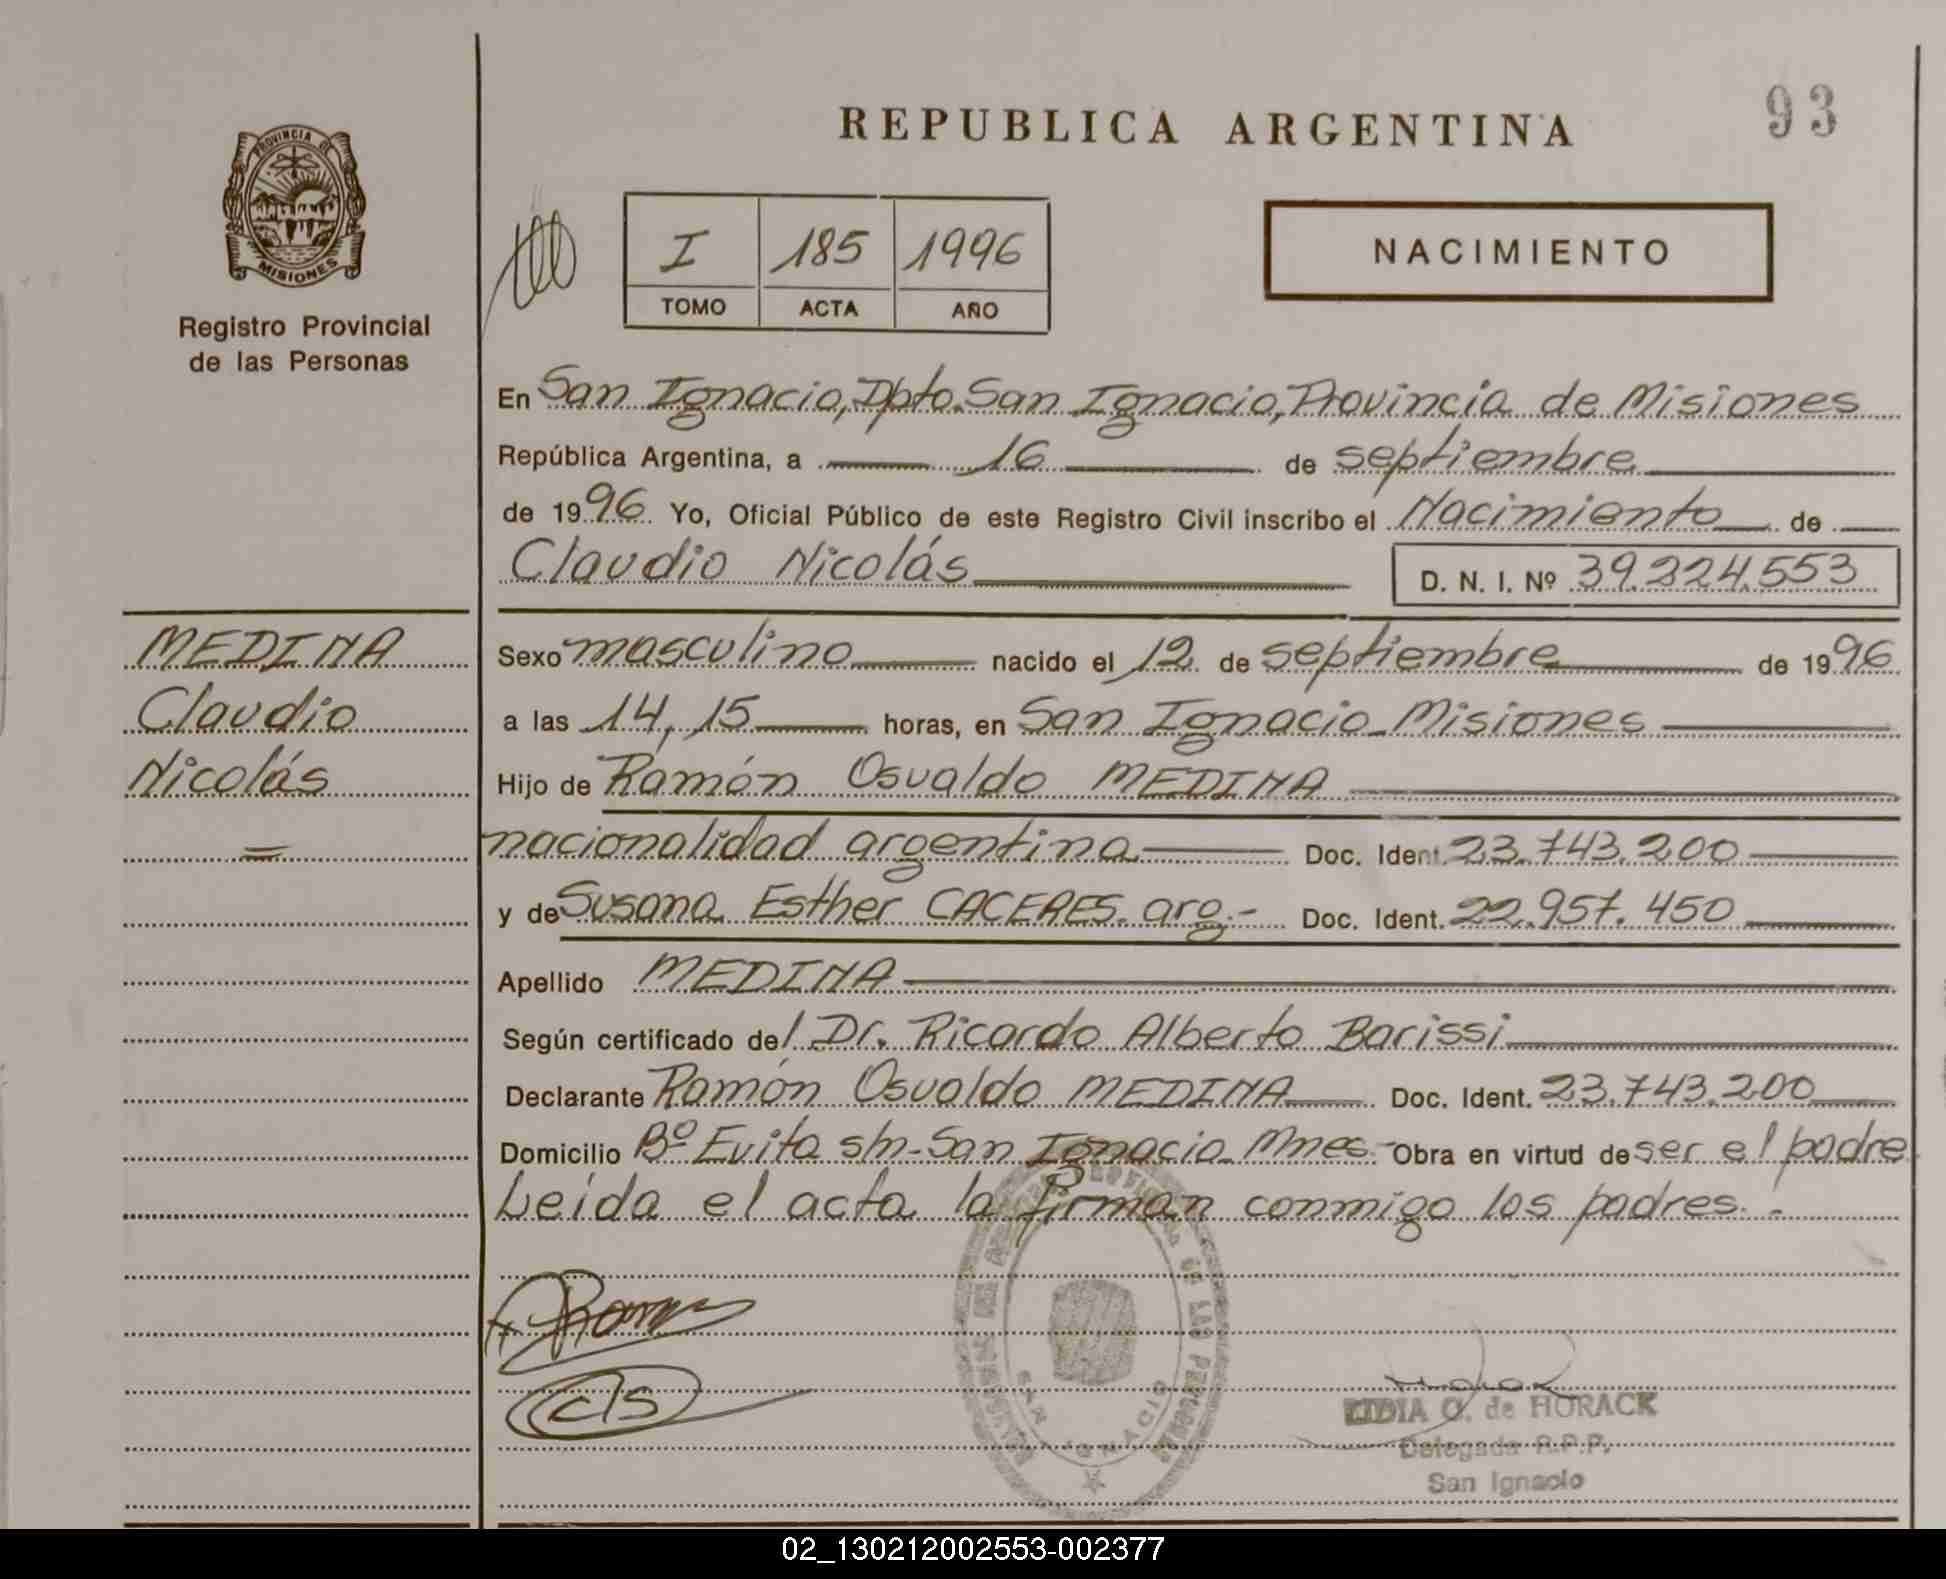 REPUBLICA ARGENTINA
93
PROVINCIA DE
MISIONES
Registro Provincial
de las Personas
I 185 1996
TOMO ACTA AÑO
NACIMIENTO
En San Ignacio, Dpto. San Ignacio, Provincia de Misiones
República Argentina, a 16 de septiembre
de 1996 Yo, Oficial Público de este Registro Civil inscribo el Nacimiento de
Claudio Nicolás D. N. I. Nº 39.224.553
MEDINA
Claudio
Nicolás
Sexo masculino nacido el 12 de septiembre de 1996
a las 14,15 horas, en San Ignacio - Misiones
Hijo de Ramón Osvaldo MEDINA
nacionalidad argentina Doc. Ident. 23.743.200
y de Susana Esther CACERES. arg.- Doc. Ident. 22.957.450
Apellido MEDINA
Según certificado del Dr. Ricardo Alberto Barissi
Declarante Ramón Osvaldo MEDINA Doc. Ident. 23.743.200
Domicilio Bº Evita s/n-San Ignacio Mnes- Obra en virtud de ser el padre
Leída el acta la firman conmigo los padres.-
SAN IGNACIO
LIDIA O. de HORACK
Delegada R.P.P.
San Ignacio
02_130212002553-002377